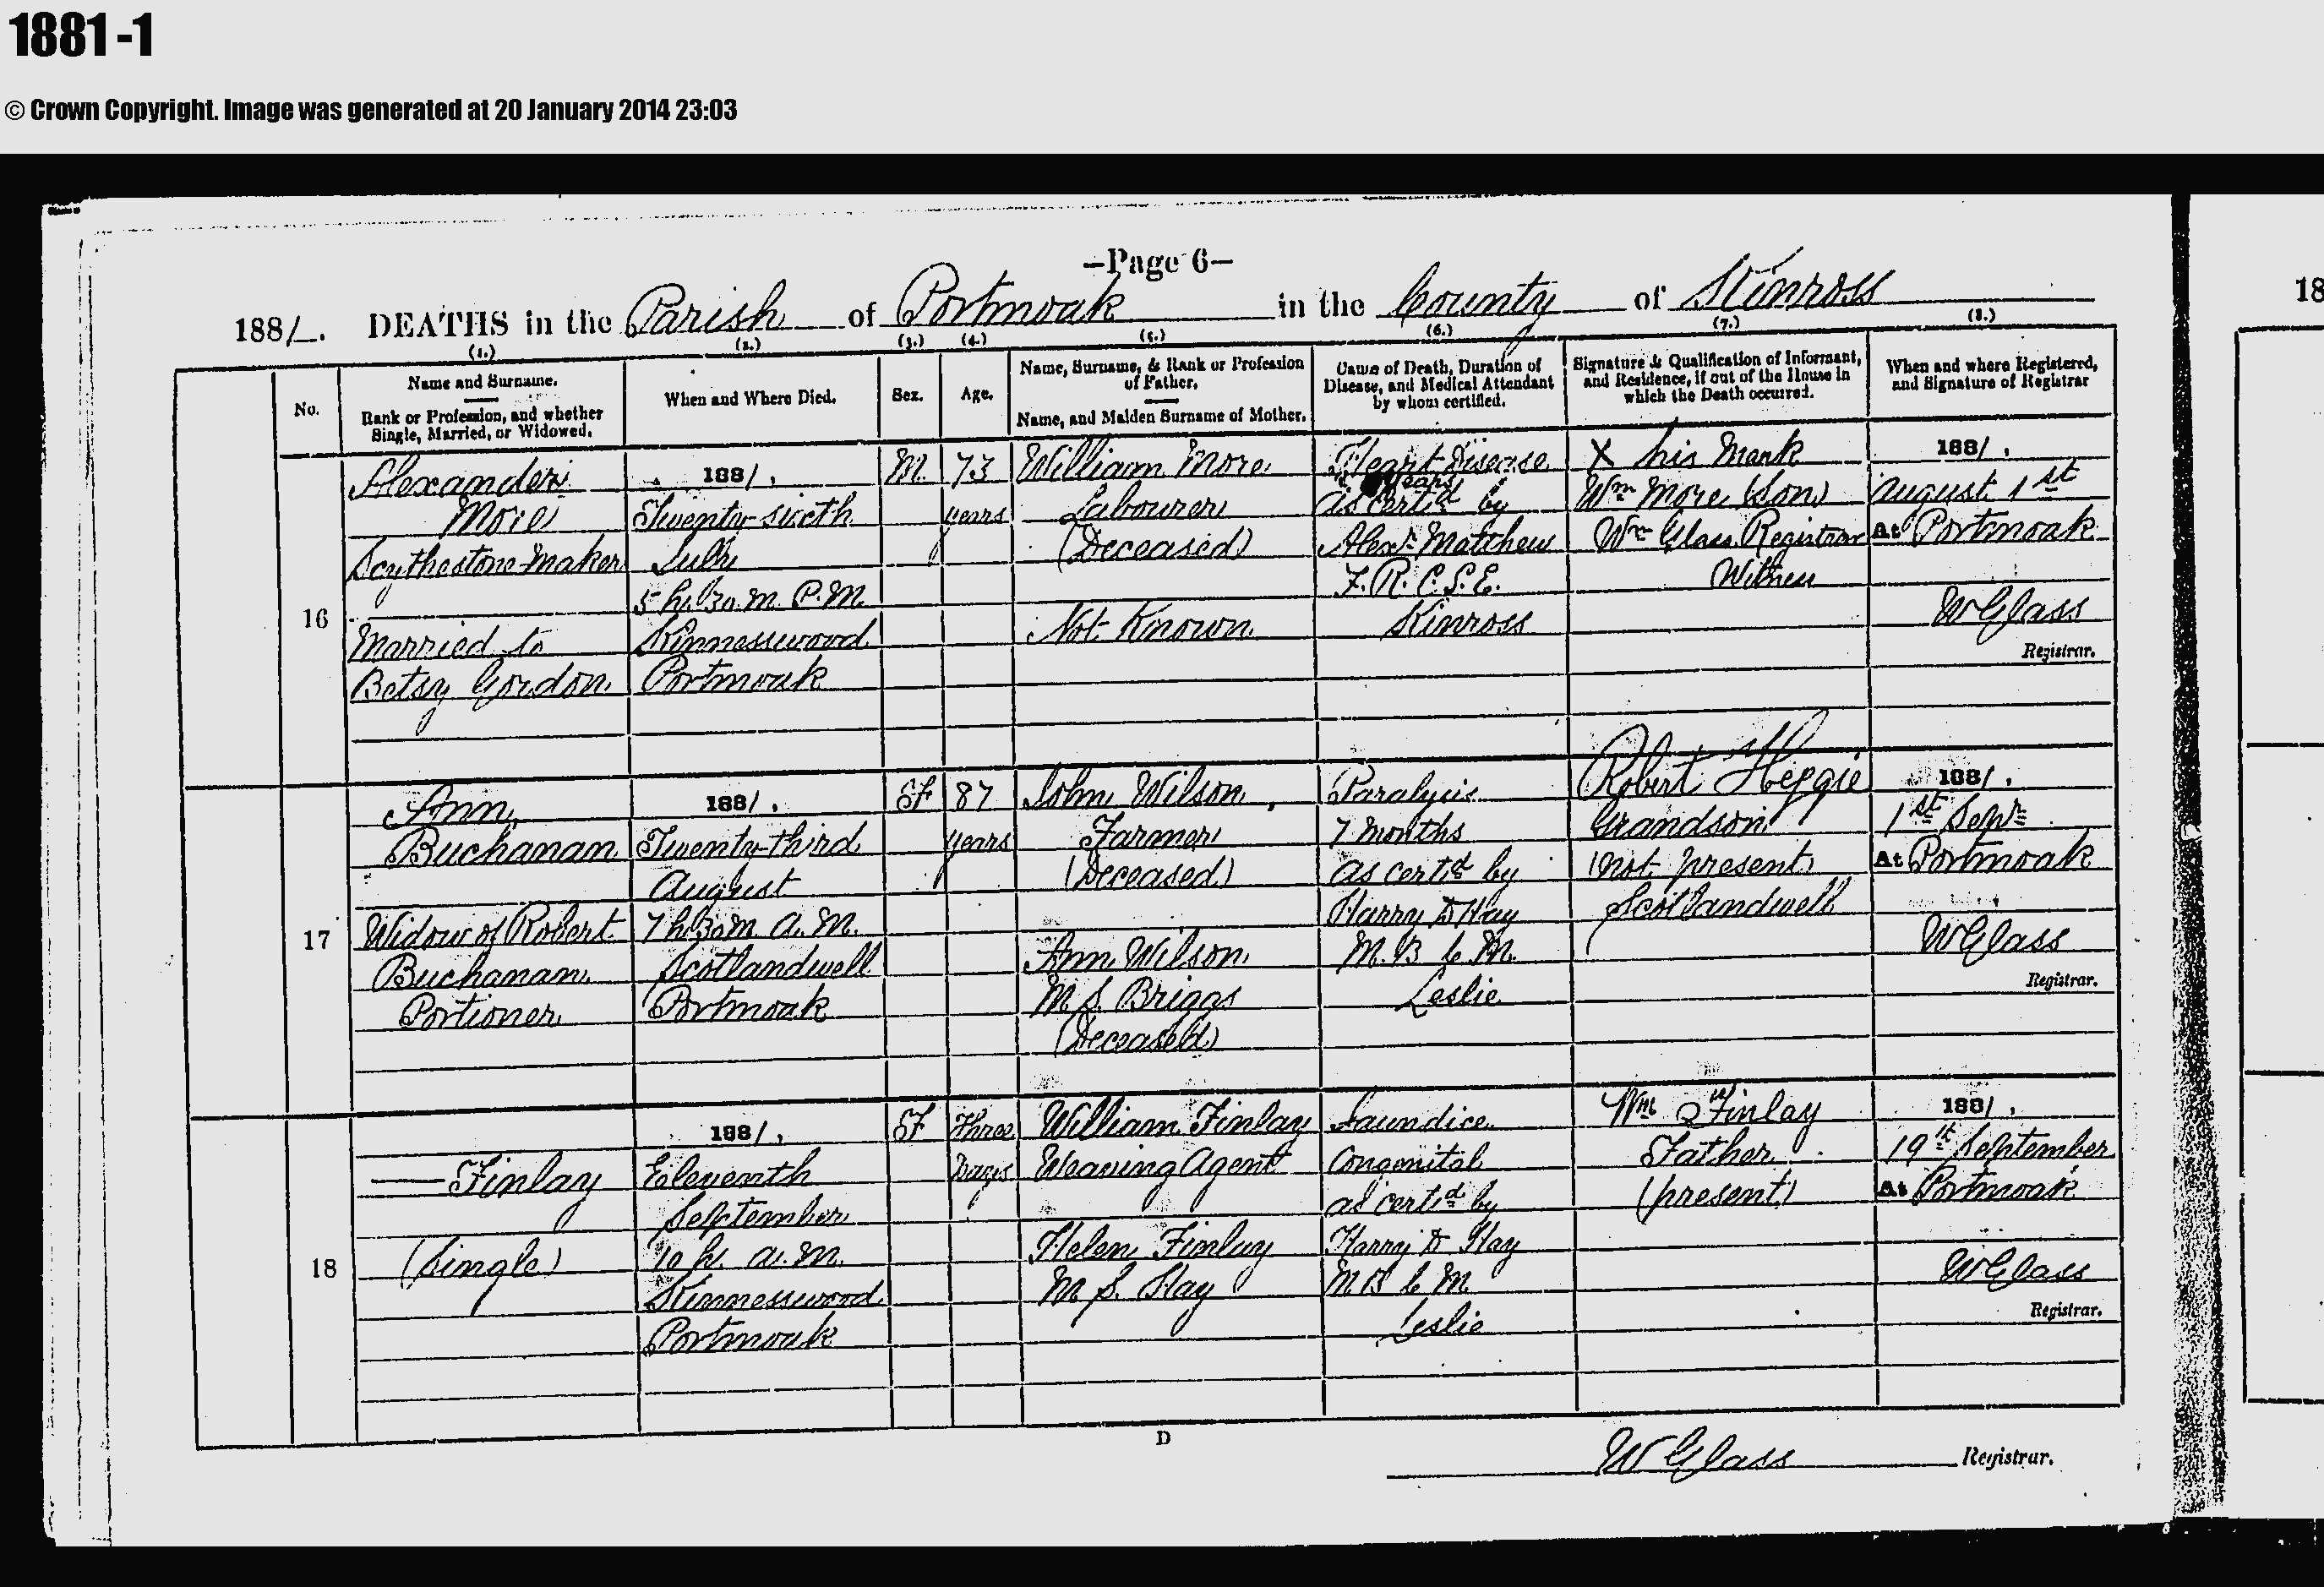 1881-1
© Crown Copyright. Image was generated at 20 January 2014 23:03
—Page 6—
1881. DEATHS in the Parish of Portmoak in the County of Kinross
18
(1.) (2.) (3.) (4.) (5.) (6.) (7.) (8.)
No.
Name and Surname.
Rank or Profession, and whether
Single, Married, or Widowed.
When and Where Died.
Sex.
Age.
Name, Surname, & Rank or Profession
of Father.
Name, and Maiden Surname of Mother.
Cause of Death, Duration of
Disease, and Medical Attendant
by whom certified.
Signature & Qualification of Informant,
and Residence, if out of the House in
which the Death occurred.
When and where Registered,
and Signature of Registrar
16
Alexander
More
Scythestone-maker
Married to
Betsy Gordon
1881.
Twenty-sixth
July
5 h. 30 m. P.M.
Kinnesswood
Portmoak
M.
73
years
William More
Labourer
(Deceased)
Not Known
Heart Disease
years
as certd by
Alexr Matthew
F.R.C.S.E.
Kinross
X his Mark
Wm More (Son)
Wm Glass Registrar
Witness
1881.
August 1st
At Portmoak
W Glass
Registrar.
17
Ann
Buchanan
Widow of Robert
Buchanan
Portioner
1881.
Twenty-third
August
7 h. 30 m A.M.
Scotlandwell
Portmoak
F
87
years
John Wilson
Farmer
(Deceased)
Ann Wilson
M.S. Briggs
(Deceased)
Paralysis
7 months
as certd by
Harry D Hay
M.B C.M.
Leslie
Robert Heggie
Grandson
(not present)
Scotlandwell
1881.
1st Sepr
At Portmoak
W Glass
Registrar.
18
— Finlay
(Single)
1881.
Eleventh
September
10 h. A.M.
Kinnesswood
Portmoak
F
Three
Days
William Finlay
Weaving Agent
Helen Finlay
M.S. Hay
Jaundice
Congenital
as certd by
Harry D Hay
M B C M
Leslie
Wm Finlay
Father
(present)
1881.
19th September
At Portmoak
W Glass
Registrar.
D
W Glass Registrar.